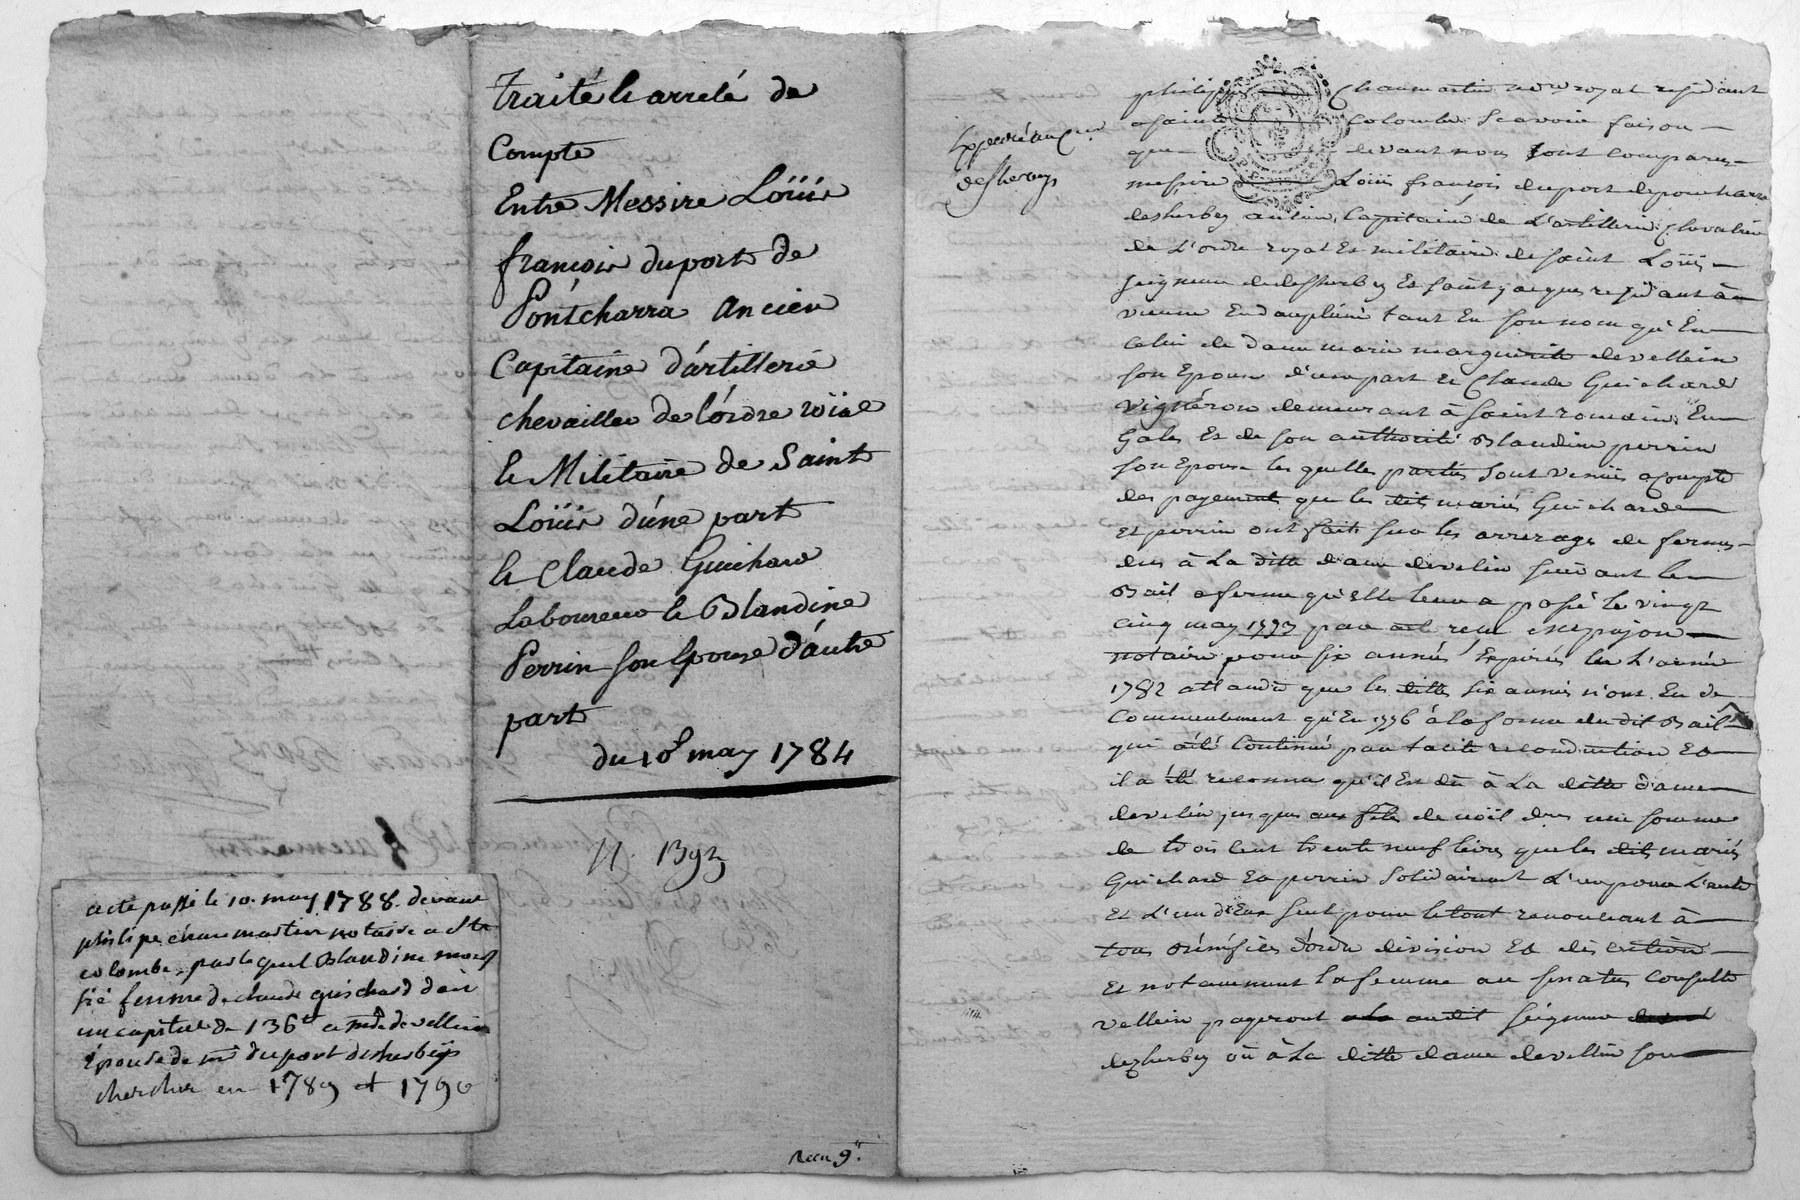 Traité & arreté de
Compte
Entre Messire Loüis
françois duport de
Pontcharra ancien
Capitaine d'artillerie
chevailler de l'ordre roïal
& Militaire de Saint
Loüis d'une part
& Claude Guichard
Laboureur & Blandine
Perrin son Epouse d'autre
part
du 10 may 1784
acte passé le 10. may 1788. devant
philipe chaumartin notaire a Ste
colombe, par lequel Blandine
femme de claude guichard doit
un capital de 136 a mde de vellein
épouse de mr duport desherbeys
chercher en 1789 et 1790
Recu 9
Expedié au
desherbeys
philippe Chaumartin royal residant
a sainte Colombe Scavoir faison
que devant nous sont comparu
messire Loüis françois duport de pontcharra
desherbeys ancien Capitaine de L'artillerie Chevalier
de L'ordre royal Et militaire de saint Loüis
seigneur desherbeys Et saint jacques residant à
vienne En dauphiné tant En son nom qu'En
celui de dame marie marguerite devellein
son Epouse d'une part et Claude Guichard
vigneron demeurant à saint romain En
Gales Et de son authorité Blandine perrin
son Epouse les quelles parties sont venües a compte
des payements que les dits mariés Guichard
Et perrin ont fait sur les arrerages de fermes
dus à La ditte dame devellein suivant le
Bail a ferme qu'elle leur a passé le vingt
cinq may 1773 par
notaire pour six années Expirées En L'année
1782 attandu que les dittes six années n'ont Eu de
Commencement qu'En 1776 à la forme du dit Bail
qui a été Continué par tacite reconduction Et
il a été reconnu qu'il Est dû à La ditte dame
devellein jusques aux fêtes de noël une somme
de trois Cent trente neuf livres que les dits mariés
Guichard Et perrin solidairement L'un pour L'autre
Et L'un d'Eux seul pour le tout renonceant à
tous bénéfices d'ordre division Et
Et notamment la femme au senatus consulte
vellein payeront audit seigneur
desherbeys où à La ditte dame devellein son